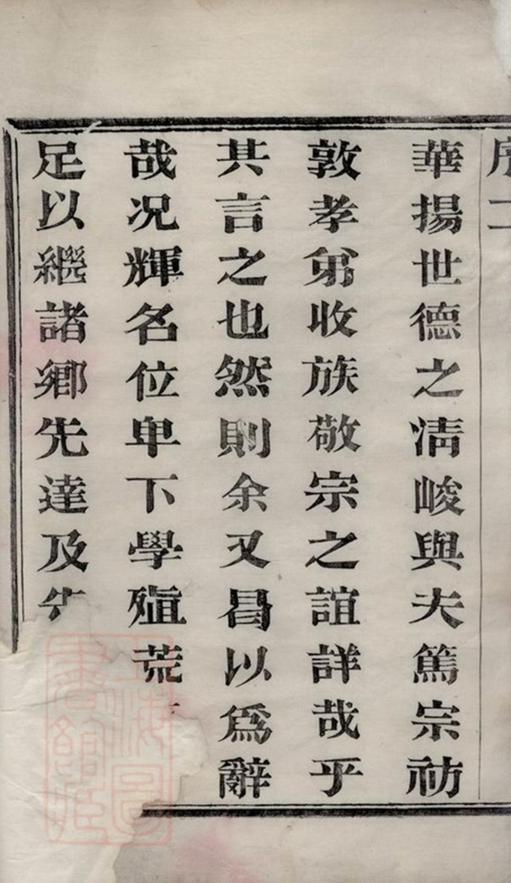 序二
華揚世德之淸峻與夫篤宗祊
敦孝弟收族敬宗之誼詳哉乎
其言之也然則余又曷以爲辭
哉况輝名位卑下學殖荒
足以繼諸鄉先達及先